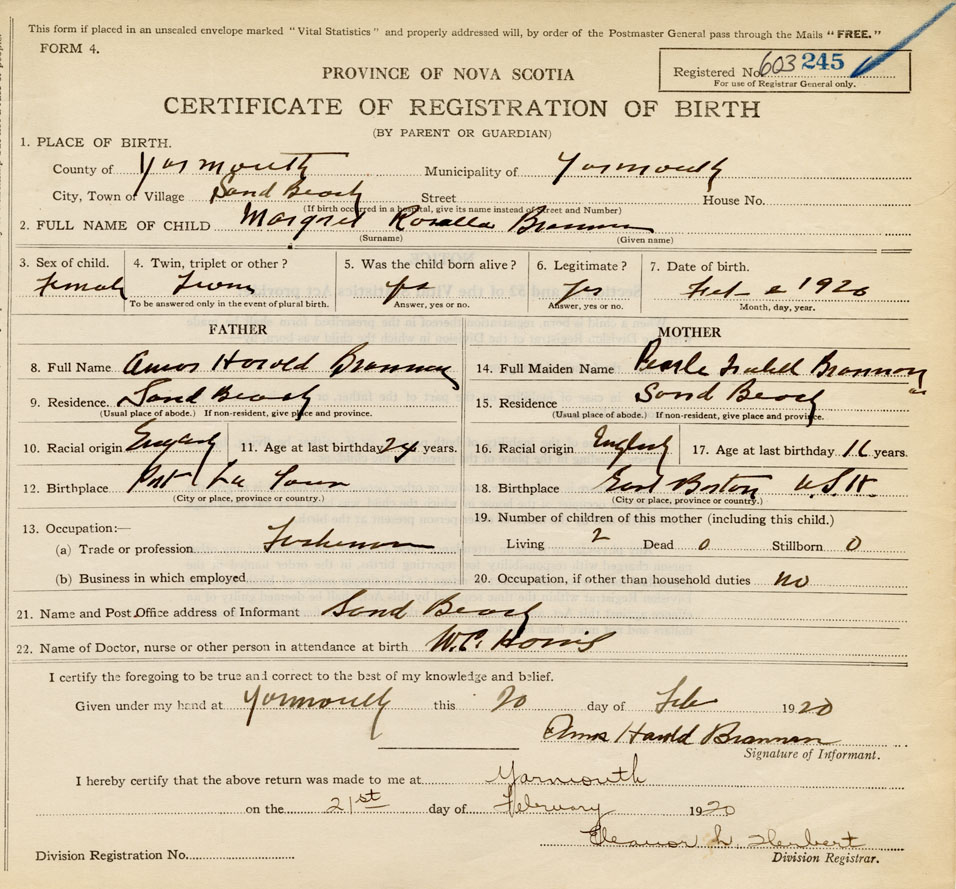 This form if placed in an unsealed envelope marked "Vital Statistics" and properly addressed will, by order of the Postmaster General pass through the Mails "FREE."
FORM 4.
Registered No. 603 245
For use of Registrar General only.
PROVINCE OF NOVA SCOTIA
CERTIFICATE OF REGISTRATION OF BIRTH
(BY PARENT OR GUARDIAN)
1. PLACE OF BIRTH.
County of Yarmouth Municipality of Yarmouth
City, Town or Village Sand Beach Street House No.
(If birth occurred in a hospital, give its name instead of Street and Number)
2. FULL NAME OF CHILD Margret Rosella Brannan
(Surname) (Given name)
3. Sex of child. 4. Twin, triplet or other? 5. Was the child born alive? 6. Legitimate? 7. Date of birth.
Female Twin yes yes Feb 2 1920
To be answered only in the event of plural birth. Answer, yes or no. Answer, yes or no. Month, day, year.
FATHER MOTHER
8. Full Name Amos Harold Brannan 14. Full Maiden Name Pearle Isabell
9. Residence Sand Beach 15. Residence Sand Beach
(Usual place of abode.) If non-resident, give place and province. (Usual place of abode.) If non-resident, give place and province.
10. Racial origin English 11. Age at last birthday 24 years. 16. Racial origin English 17. Age at last birthday years.
12. Birthplace Port La Tour 18. Birthplace East Boston U.S.A.
(City or place, province or country.) (City or place, province or country.)
13. Occupation:— 19. Number of children of this mother (including this child.)
(a) Trade or profession Fisherman Living 2 Dead 0 Stillborn 0
(b) Business in which employed 20. Occupation, if other than household duties no
21. Name and Post Office address of Informant Sand Beach
22. Name of Doctor, nurse or other person in attendance at birth W.C. Harris
I certify the foregoing to be true and correct to the best of my knowledge and belief.
Given under my hand at Yarmouth this 20 day of Feb 1920
Amos Harold Brannan
Signature of Informant.
I hereby certify that the above return was made to me at Yarmouth
on the 21st day of February 1920
Eleanor L. Herbert
Division Registration No. Division Registrar.